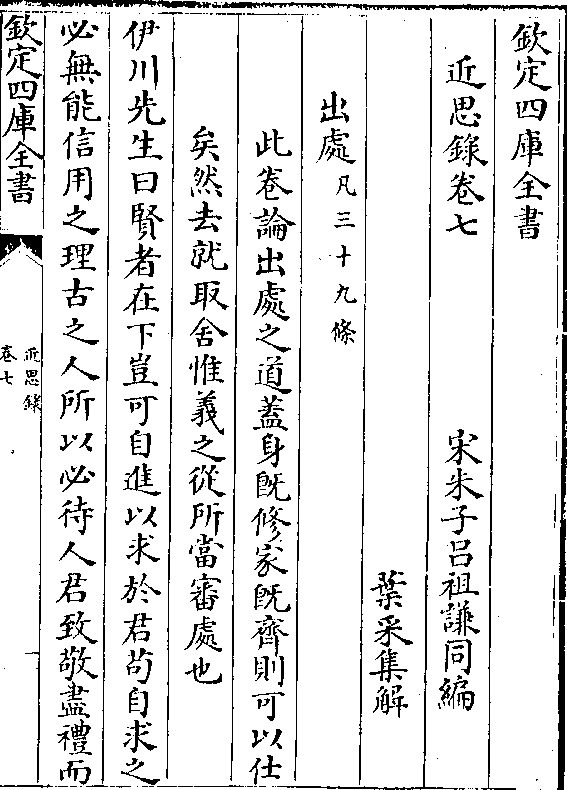 欽定四庫全書
近思錄卷七
宋朱子呂祖謙同編
葉采集解
出處凡三十九條
此卷論出處之道蓋身既修家既齊則可以仕
矣然去就取舍惟義之從所當審處也
伊川先生曰賢者在下豈可自進以求於君苟自求之
必無能信用之理古之人所以必待人君致敬盡禮而
欽定四庫全書
近思錄
卷七
一